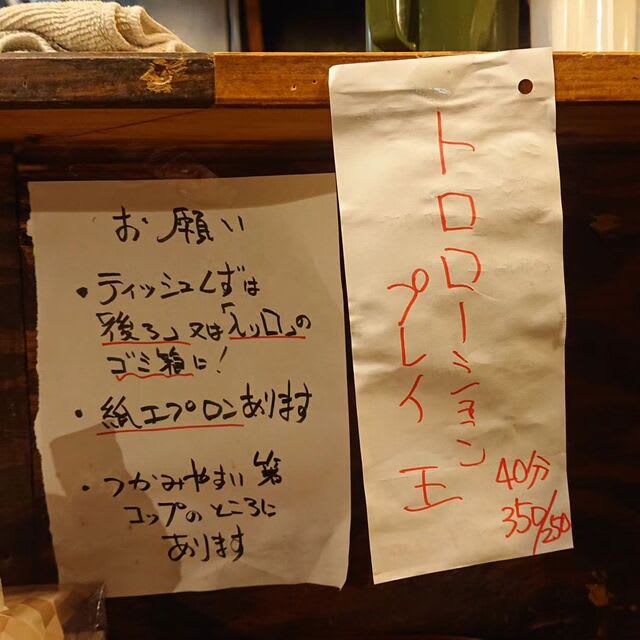 お願い
・ティッシュくずは
「後ろ」又は「入り口」の
ゴミ箱に!
・紙エプロンあります
・つかみやすい箸
コップのところに
あります
トロローション
プレイ 王
40分
350/250